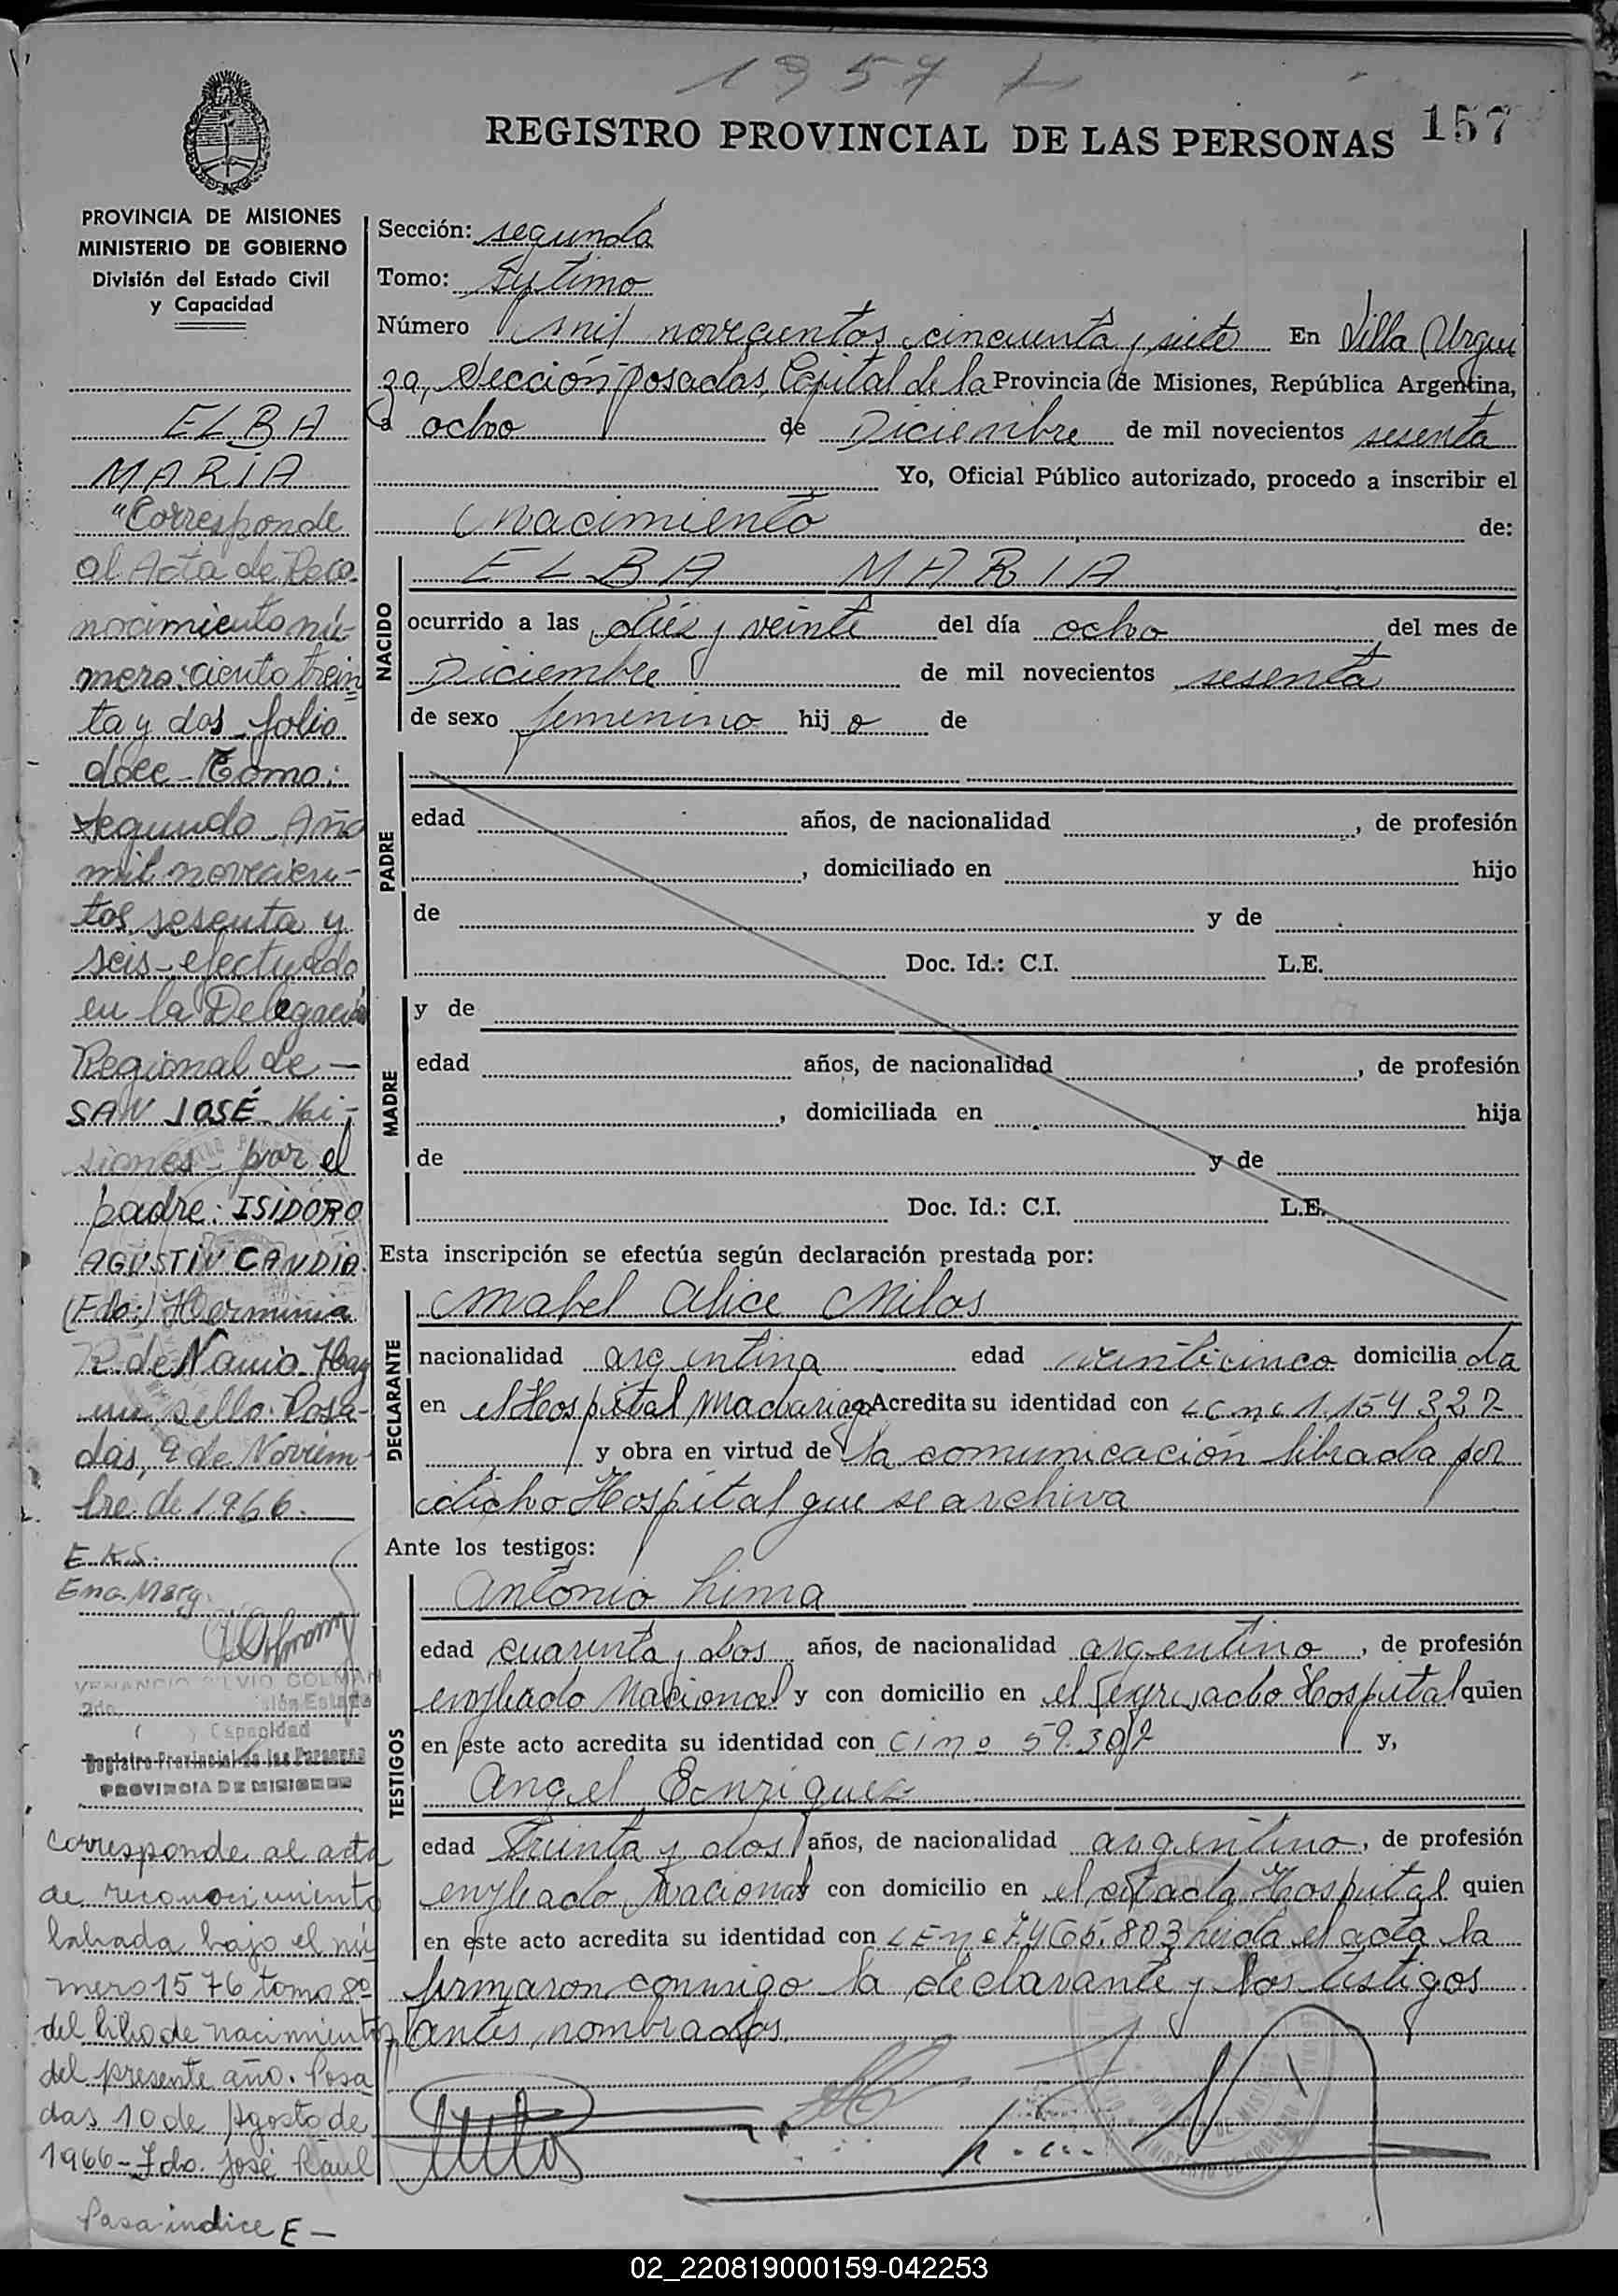 1957
REGISTRO PROVINCIAL DE LAS PERSONAS 157
PROVINCIA DE MISIONES
MINISTERIO DE GOBIERNO
División del Estado Civil
y Capacidad
ELBA
MARIA
"Corresponde
al Acta de Reco-
nocimiento nú-
mero: ciento trein
ta y dos folio
doce - Tomo:
segundo Año
mil novecien-
tos sesenta y
seis - efectuado
en la Delegación
Regional de -
SAN JOSÉ Mi-
siones - por el
padre: ISIDORO
AGUSTIN CANDIA.
(Fdo:) Herminia
R. de Hay
un sello. Posa-
das, 9 de Noviem-
bre de 1966.
E.K.S.
Eno. Marg.
VENANCIO SILVIO COLMAN
2do.
Capacidad
Registro Provincial de las Personas
PROVINCIA DE MISIONES
Corresponde al acta
de reconocimiento
labrada bajo el nú
mero 1576 tomo 8º
del libro de nacimiento
del presente año. Posa
das 10 de Agosto de
1966 - Fdo. José Raul
Pasa indice E -
Sección: segunda
Tomo: Septimo
Número mil novecientos cincuenta y siete En Villa Urqui
za, Sección Posadas, Capital de la Provincia de Misiones, República Argentina,
a ocho de Diciembre de mil novecientos sesenta
Yo, Oficial Público autorizado, procedo a inscribir el
nacimiento de:
NACIDO
ELBA MARIA
ocurrido a las diez y veinte del día ocho del mes de
Diciembre de mil novecientos sesenta
de sexo femenino hij a de
PADRE
edad años, de nacionalidad , de profesión
, domiciliado en hijo
de y de
Doc. Id.: C.I. L.E.
MADRE
y de
edad años, de nacionalidad , de profesión
, domiciliada en hija
de y de
Doc. Id.: C.I. L.E.
Esta inscripción se efectúa según declaración prestada por:
DECLARANTE
Mabel Alice Milos
nacionalidad argentina edad veinticinco domicilia da
en el Hospital Madariaga Acredita su identidad con LC nº 1.154.327
y obra en virtud de la comunicación librada por
dicho Hospital que se archiva
Ante los testigos:
TESTIGOS
Antonio Lima
edad cuarenta y dos años, de nacionalidad argentino, de profesión
empleado Nacional y con domicilio en el expresado Hospital quien
en este acto acredita su identidad con CI nº y,
Angel Enriquez
edad Treinta y dos años, de nacionalidad argentino, de profesión
empleado Nacional con domicilio en el citado Hospital quien
en este acto acredita su identidad con LE nº 7.465.803 leida el acta la
firmaron conmigo la declarante y los testigos
antes nombrados.
02_220819000159-042253